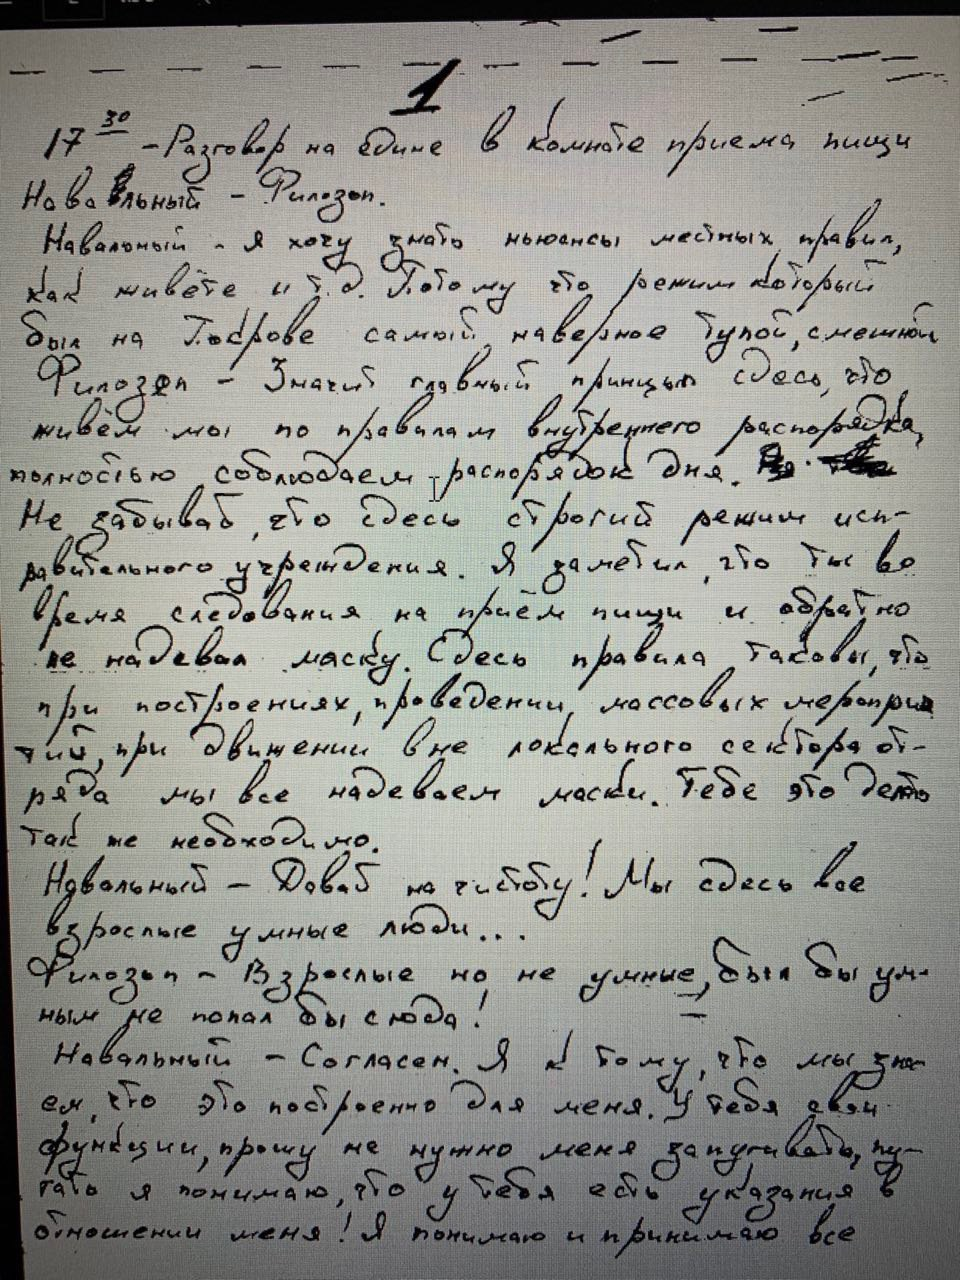 1
17 30 – Разговор на едине в комнате приема пищи
Навальный – Филозоп.
Навальный – я хочу знать ньюансы местных правил,
как живёте и т.д. Потому что режим который
был на Покрове самый наверное тупой, смешной
Филозоп – Значит главный принцып сдесь, что
живём мы по правилам внутреннего распорядка,
полностью соблюдаем распорядок дня.
Не забывай, что сдесь строгий режим исп-
равительного учреждения. Я заметил, что ты во
время следования на приём пищи и обратно
не надевал маску. Сдесь правила таковы, что
при построениях, проведении, массовых меропри
тий, при движении вне локального сектора от-
ряда мы все надеваем маски. Тебе это
так же необходимо.
Навальный – Давай на чистоту! Мы сдесь все
взрослые умные люди...
Филозоп – Взрослые но не умные, был бы ум-
ным не попал бы сюда!
Навальный – Согласен. Я к тому, что мы зна-
ем, что это построенно для меня. У тебя свои
функции, прошу не нужно меня запугивать, пу-
гать я понимаю, что у тебя есть указания в
отношении меня! Я понимаю и принимаю все